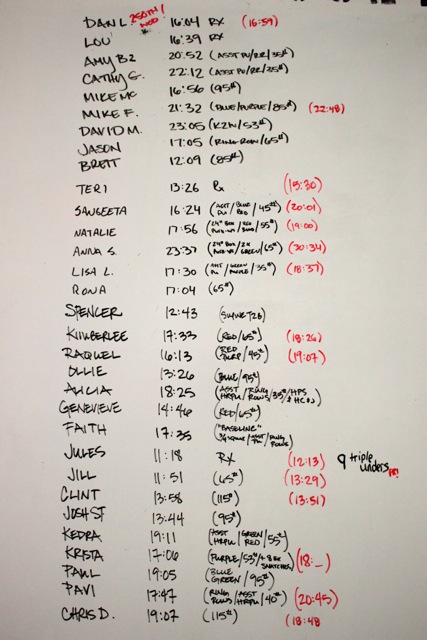 DAN L. 250TH! WOD * 16:04 RX (16:59)
LOU 16:39 RX
AMY B2 20:52 (ASST PU/RR/35#)
CATHY G. 22:12 (ASST PU/RR/25#)
MIKE MC 16:56 (95#)
MIKE F. 21:32 (BLUE/PURPLE/85#) (22:48)
DAVID M. 23:05 (K2N/53#)
JASON 17:05 (RING ROW/65#)
BRETT 12:09 (85#)
TERI 13:26 Rx (15:30)
SANGEETA 16:24 (ASST PU/BLUE RED/45#) (20:01)
NATALIE 17:56 (24" BOX/RED /55#) (19:00)
ANNA S. 23:37 (24" BOX/2X GREEN/65#) (30:34)
LISA L. 17:30 (ASST PU/GREEN PURPLE/35#) (18:37)
RONA 17:04 (65#)
SPENCER 12:43
KIMBERLEE 17:33 (RED/65#) (18:26)
RAQUEL 16:13 (RED PURP/45#) (19:07)
OLLIE 13:26 (BLUE/95#)
ALICIA 18:25 (ASST HRPU/RING ROWS/35#/HPS & HCS)
GENEVIEVE 14:46 (RED/65#)
FAITH 17:35 ("BASELINE" ASST PU/RING ROWS)
JULES 11:18 RX (12:13) 9 triple unders PR!
JILL 11:51 (65#) (13:29)
CLINT 13:58 (115#) (13:51)
JOSH ST 13:44 (95#)
KEDRA 19:11 (ASST HRPU/GREEN RED/55#)
KRISTA 17:06 (PURPLE/53#/ SNATCHES) (18:_)
PAUL 19:05 (BLUE GREEN/95#)
PAVI 17:47 (RING ROWS/ASST HRPU/40#) (20:45)
CHRIS D. 19:07 (115#) (18:48